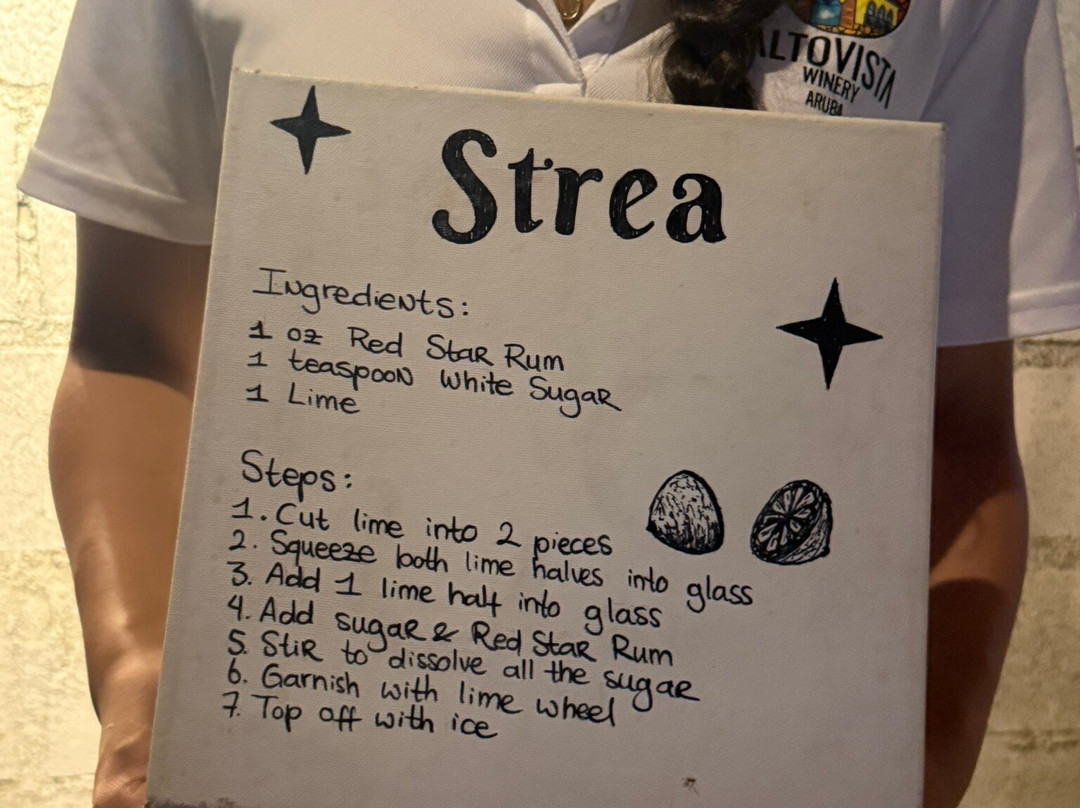 ALTOVISTA
WINERY
ARUBA
Strea
Ingredients:
1 oz Red Star Rum
1 teaspoon White Sugar
1 Lime
Steps:
1. Cut lime into 2 pieces
2. Squeeze both lime halves into glass
3. Add 1 lime half into glass
4. Add sugar & Red Star Rum
5. Stir to dissolve all the sugar
6. Garnish with lime wheel
7. Top off with ice